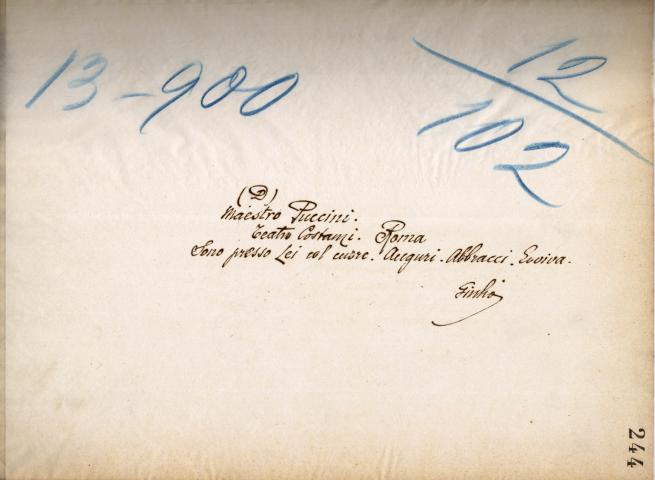 13-900
12
102
(D)
Maestro Puccini.
Teatro Costanzi. Roma
Sono presso Lei col cuore. Auguri. Abbracci. Evviva.
Giulio
244